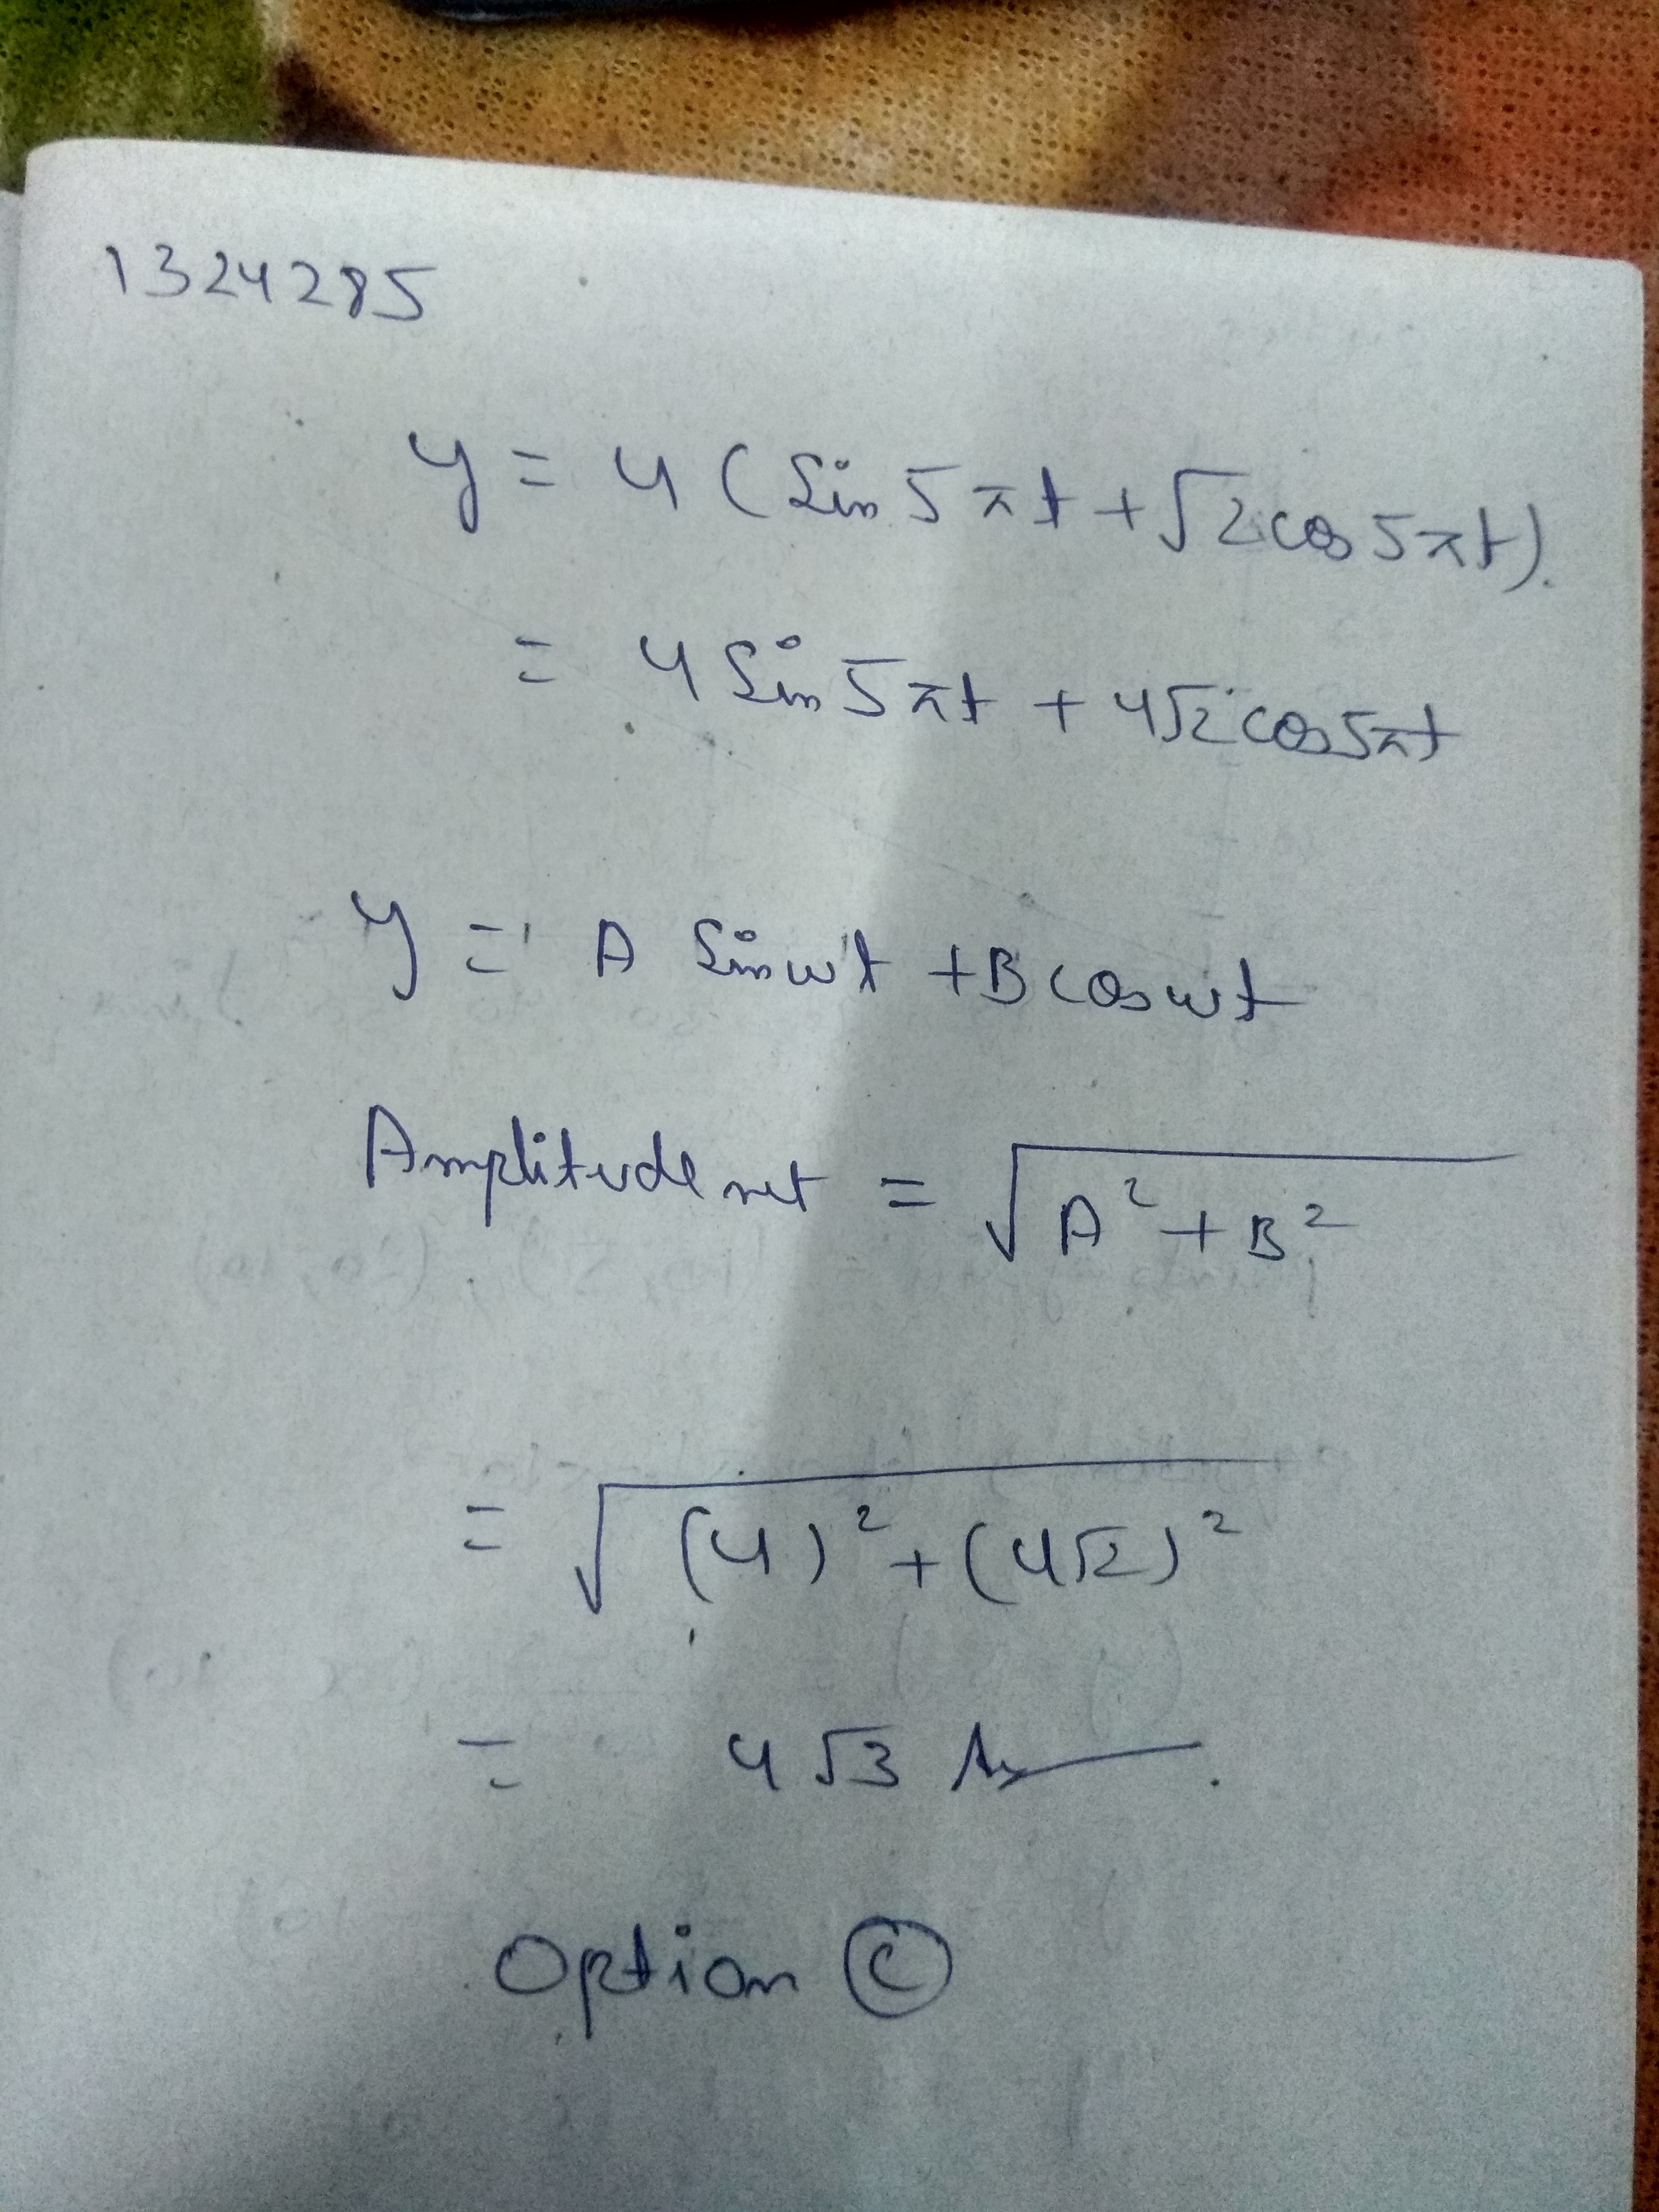 1324285
y = 4 (Sin 5πt + √2 cos 5πt).
= 4 Sin 5πt + 4√2 cos 5πt
y = A Sin ωt + B cos ωt
Amplitude net = √(A² + B²)
= √((4)² + (4√2)²)
= 4√3 Ans.
Option (C)